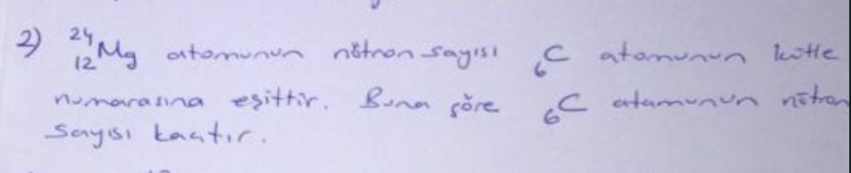 2) ²⁴₁₂Mg atomunun nötron sayısı ₆C atomunun kütle
numarasına eşittir. Buna göre ₆C atomunun nötron
sayısı kaçtır.